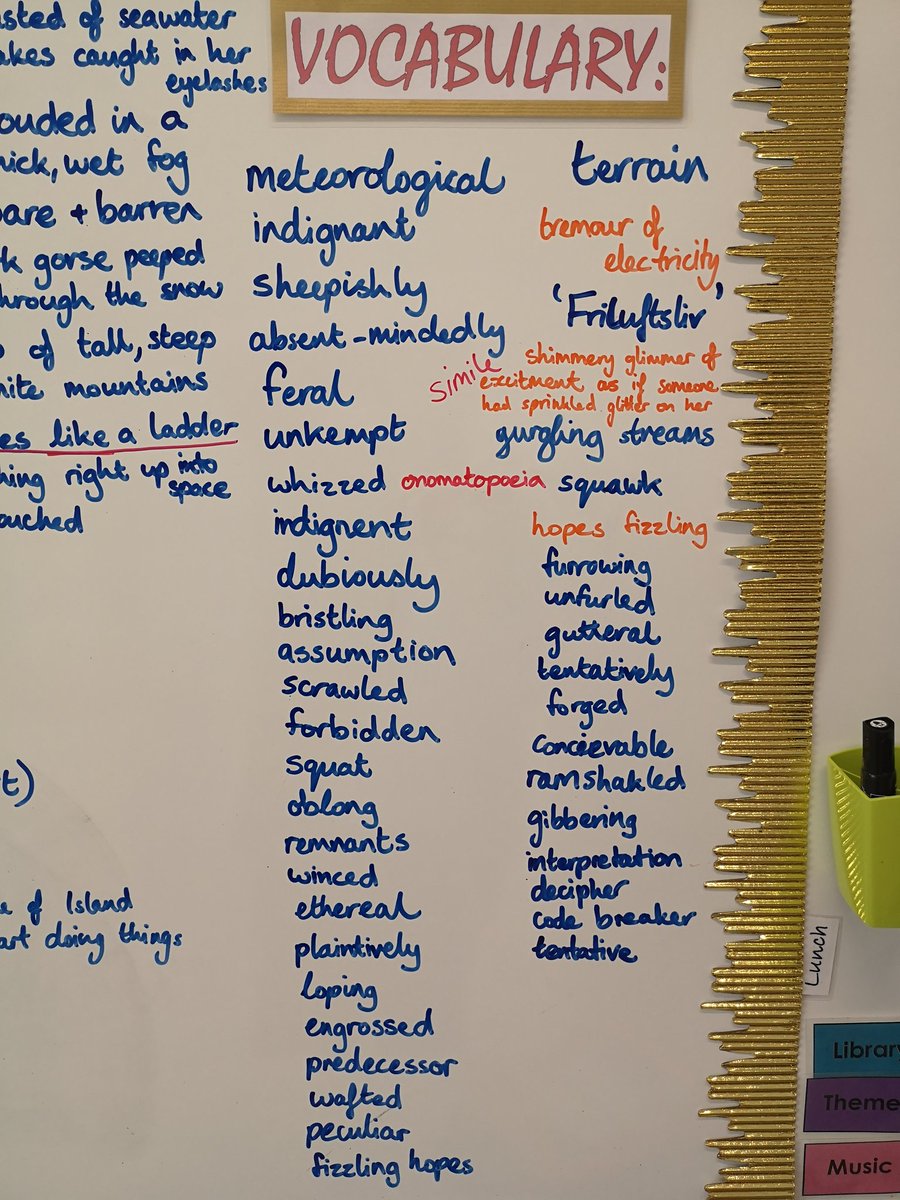 asted of seawater
akes caught in her
eyelashes
ouded in a
hick, wet fog
bare + barren
k gorse peeped
through the snow
of tall, steep
hite mountains
es like a ladder
hing right up into
space
ouched
t)
e of Island
art doing things
VOCABULARY:
meteorological
indignant
sheepishly
absent-mindedly
feral
unkempt
whizzed onomatopoeia
indignent
dubiously
bristling
assumption
scrawled
forbidden
squat
oblong
remnants
winced
ethereal
plaintively
loping
engrossed
predecessor
wafted
peculiar
fizzling hopes
terrain
tremour of
electricity
'Friluftsliv'
simile
shimmery glimmer of
excitment as if someone
had sprinkled glitter on her
gurgling streams
squawk
hopes fizzling
furrowing
unfurled
gutteral
tentatively
forged
concievable
ramshakled
gibbering
interpretation
decipher
code breaker
tentative
Lunch
Library
Theme
Music